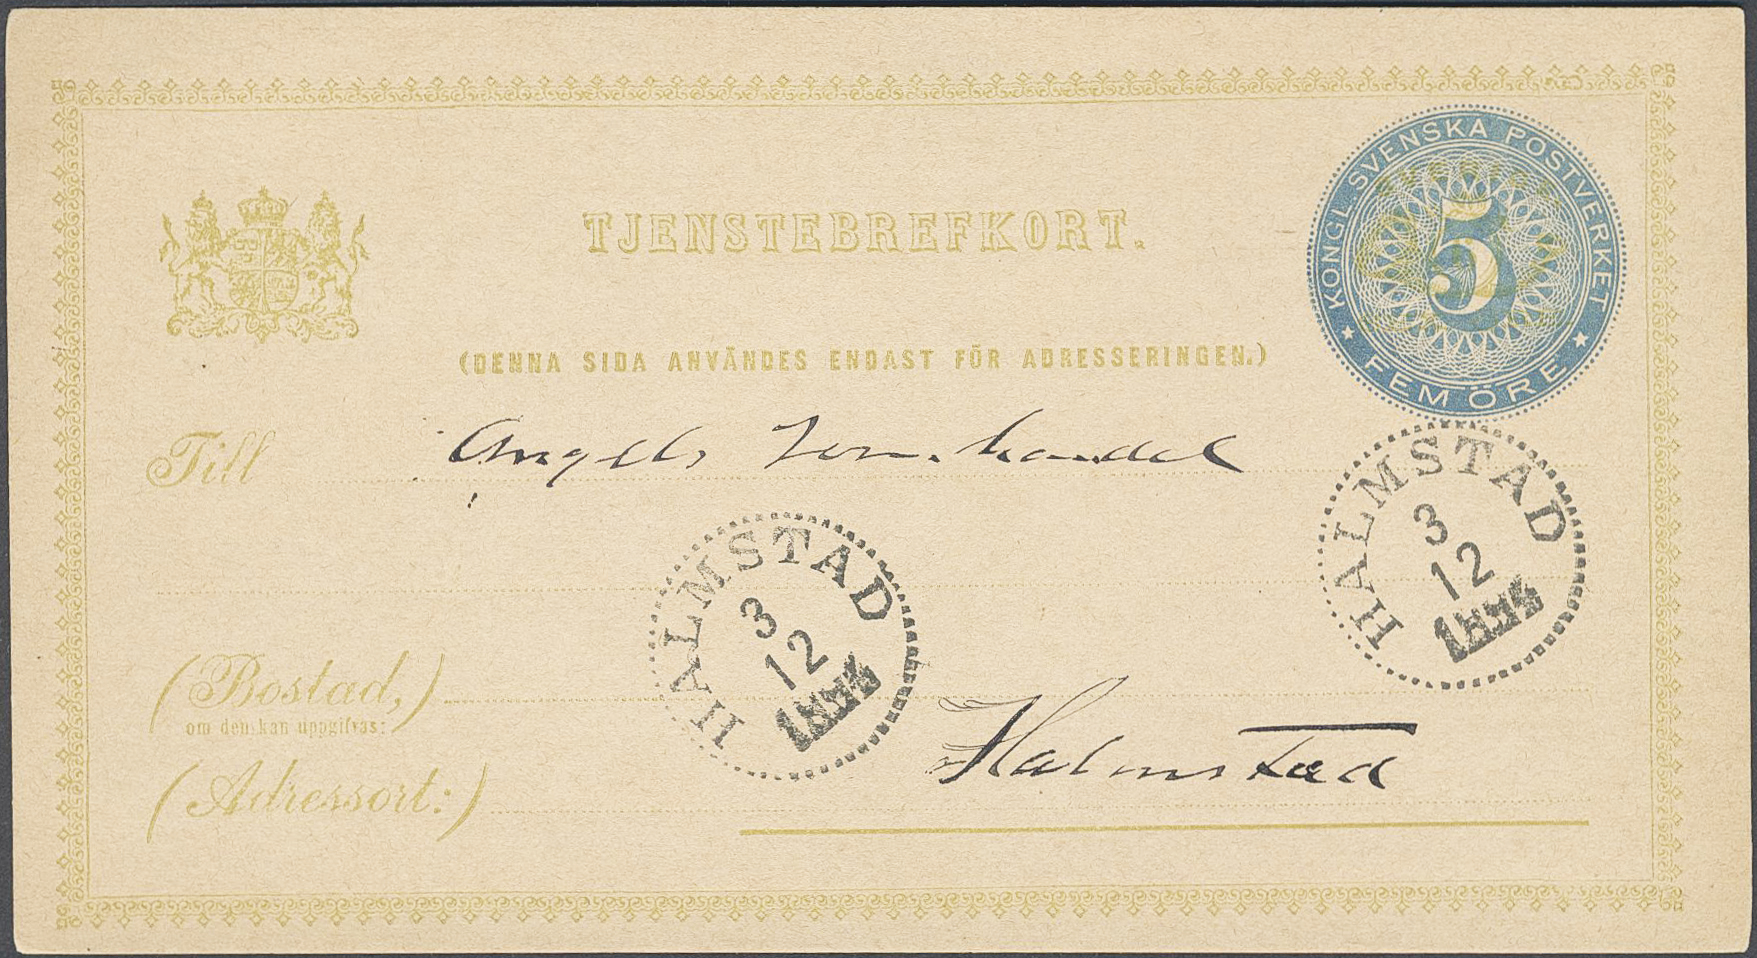 TJENSTEBREFKORT.
KONGL. SVENSKA POSTVERKET
5
FEM ÖRE
(DENNA SIDA ANVÄNDES ENDAST FÖR ADRESSERINGEN.)
Till Angels Jern.handel
HALMSTAD
3
12
HALMSTAD
3
12
(Bostad,)
om den kan uppgifvas:
(Adressort:) Halmstad